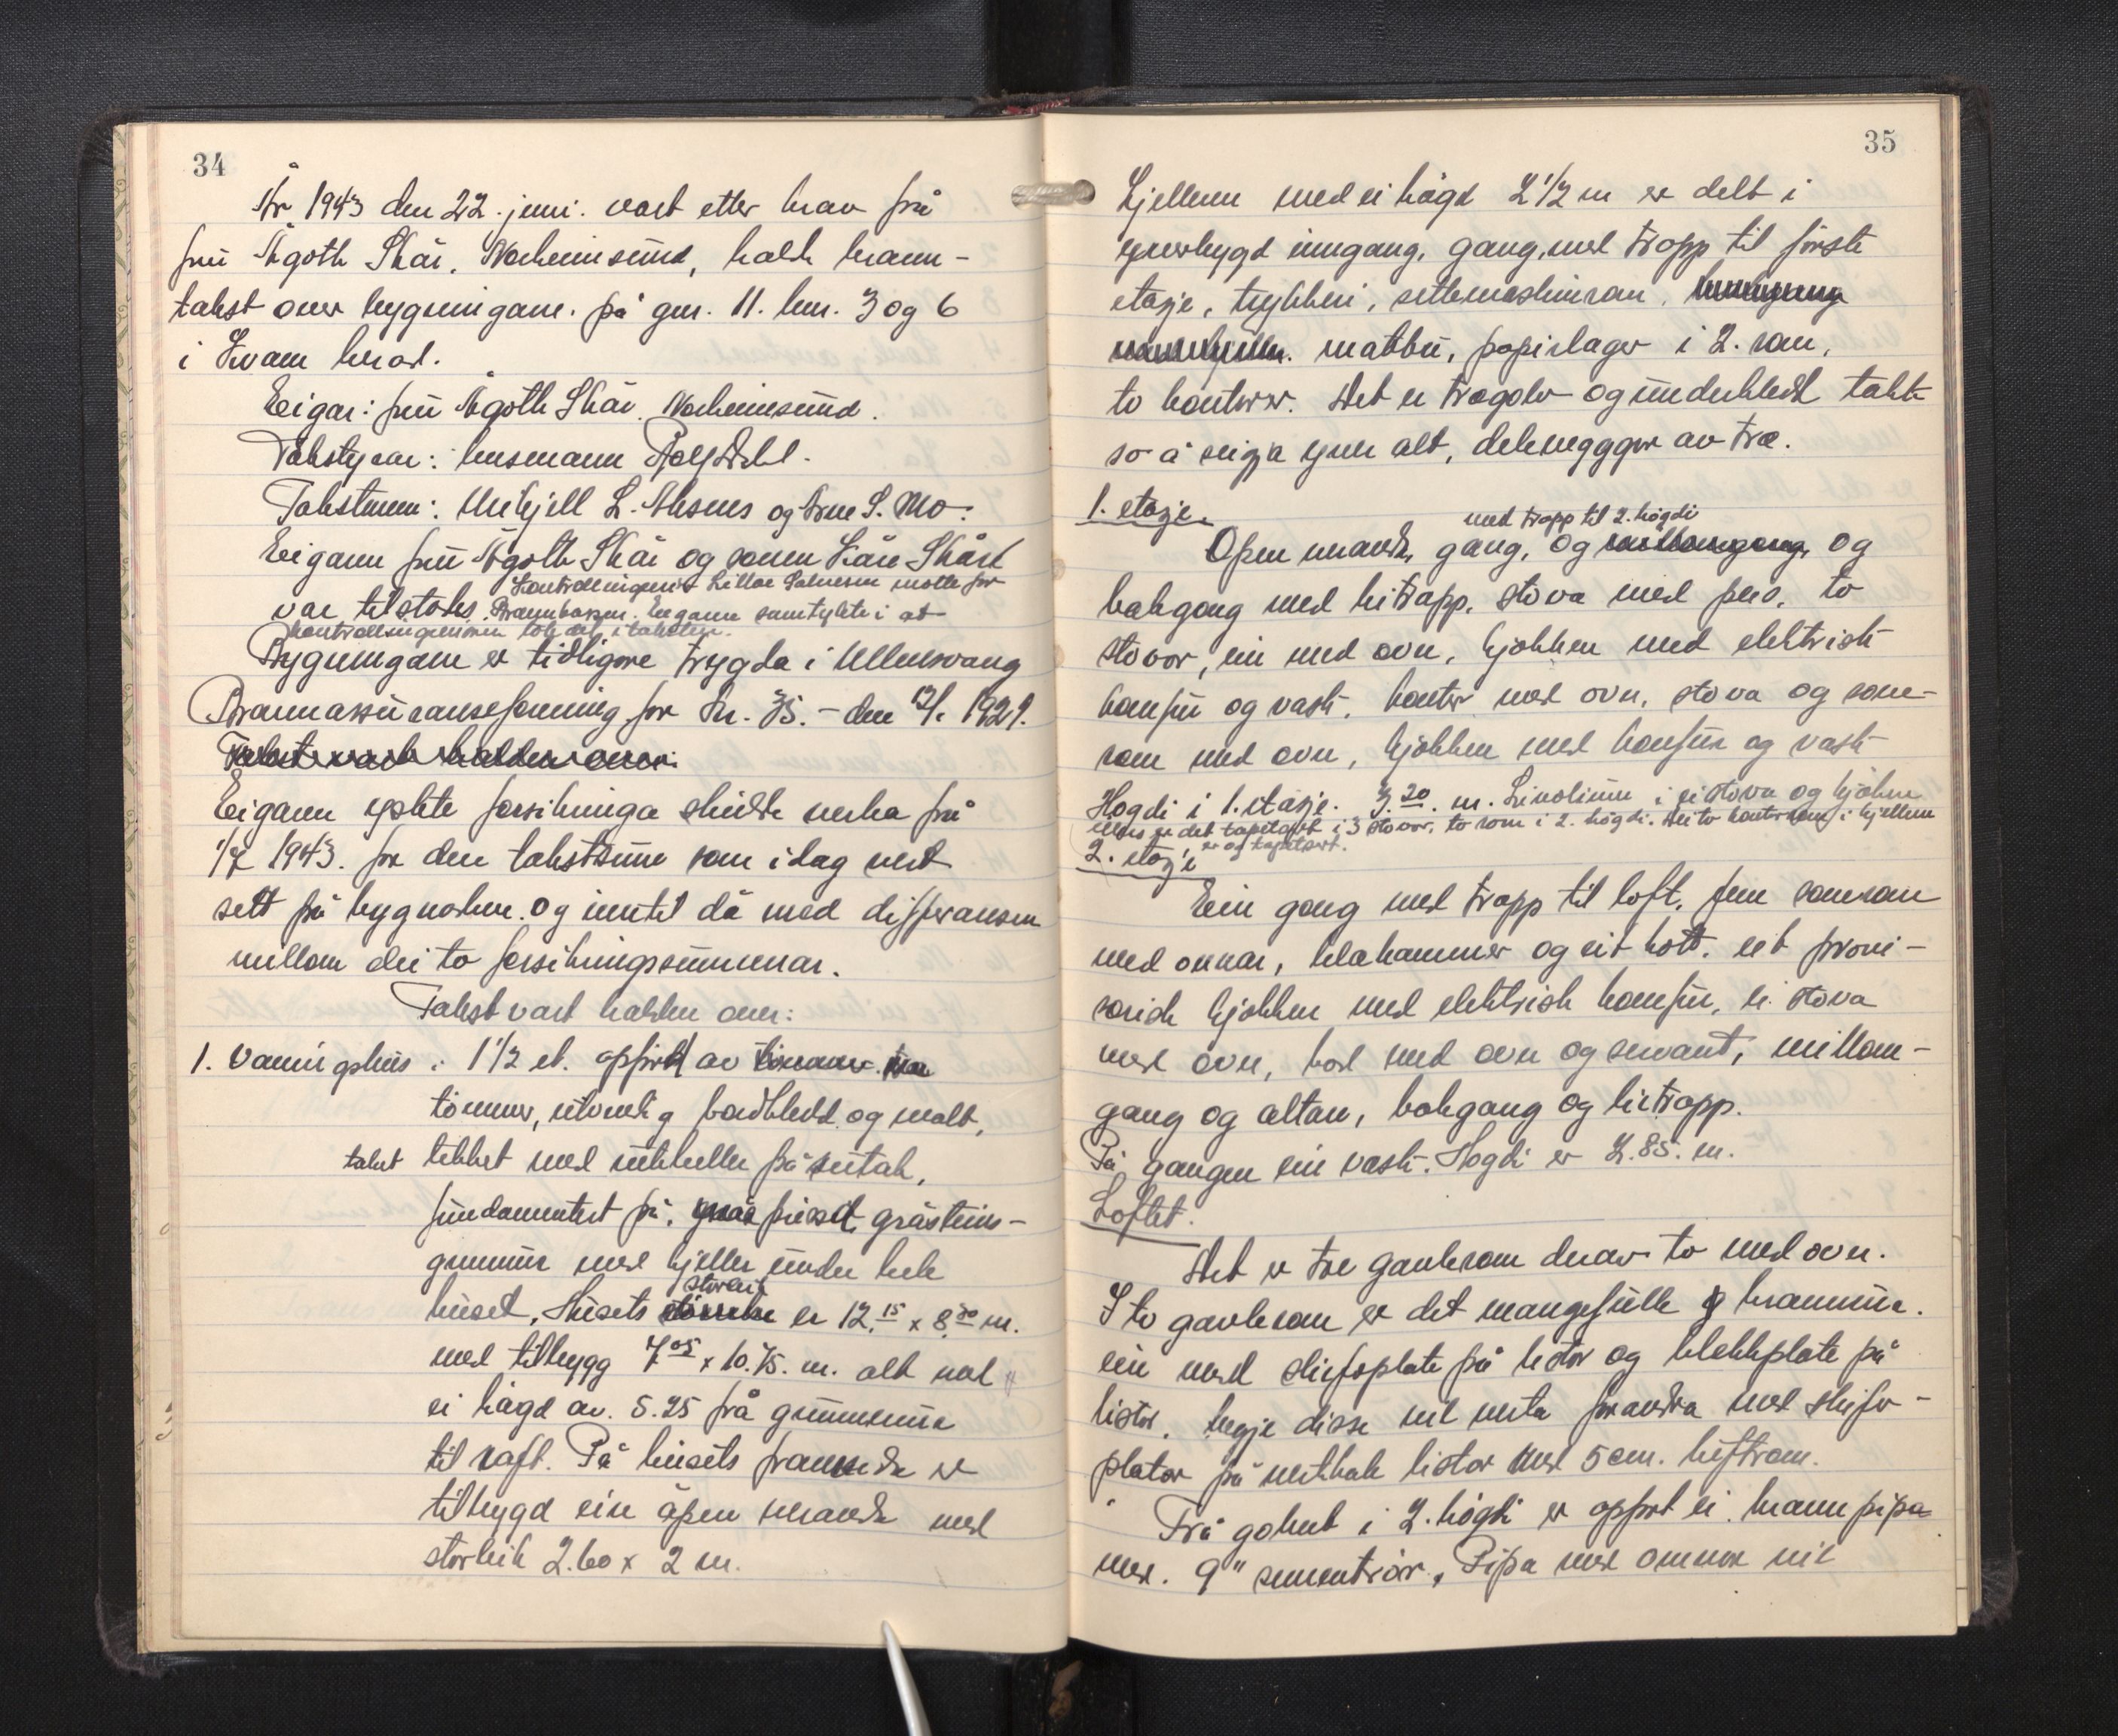 34
År 1943 den 22. juni. vart etter krav frå
fru Ågoth Skår, Norheimsund, halde brann-
takst over bygningane. på gnr. 11. bnr. 3 og 6
i Kvam herad.
Eigar: fru Ågoth Skår. Norheimsund.
Takstmenn: L. og Arne S. Mo.
Eigaren fru Ågoth Skår og sonen Kåre Skår
Kontrollingeniør Salvesen møtte for
var tilstades. Brannkassen. Eigaren samtykte i at
kontrollingeniøren tok del i taksten.
Bygningane er tidligare trygda i Ullensvang
Brannassuranseforening for Kr. 35. – den 1929.
Takst vart halden over:
Eigaren ynskte forsikringa skulde verka frå
1/7 1943. for den takstsum som i dag vert
sett på bygnaden. og inntil då med differansen
millom dei to forsikringssummar.
Takst vart halden over:
1. Vaaningshus: 1 1/2 et. oppført av
tömmer, utvendig bordkledd og malt,
taket tekket med uttheller på sutak,
fundamentert på, pussed gråsteins-
grunnmur med kjeller under hele
storleik
huset. Husets er 12.15 x 8.50 m.
med tilbygg 7.05 x 10.75. m. alt med
ei høgd av. 5.25 frå grunnmur
til raft. På husets framside er
tilbygd ein åpen veranda med
storleik 2.60 x 2 m.
35
Kjelleren med ei høgd 2 1/2 m er delt i
yverbygd inngang, gang, med trapp til fyrste
etasje, trykkeri, settemaskinrom,
matbu, papirlager i 2. rom,
to kontorer. Det er tregolv og underkledt tak
so å seigja yver alt, delevegger av tre.
1. etasje.
med trapp til 2. högdi
Open veranda, gang, og og
bakgang med kitrapp, stova med peis, to
stovor, ein med ovn, kjökken med elektrisk
komfur og vask, kontor med ovn, stova og sove-
rom med ovn, kjökken med komfur og vask
Hogdi i 1. etasje. 3.20. m. Linolium i ei stova og kjöken
elles er det tapetsert i 3 stovor, to rom i 2. högdi. Dei to kontorrom i kjelleren
er og tapetsert.
2. etasje
Ein gang med trapp til loft. fem soverom
med omnar, klekammer og eit kott. eit provi-
sorisk kjökken med elektrisk komfur, ei stova
med ovn, bad med ovn og servant, millom-
gang og altan, bakgang og kitrapp.
På gangen ein vask. Hogdi er 2.85. m.
Loftet.
Det er tre gavlerom derav to med ovn.
I to gavlerom er det mangefulle brannmur.
ein med skiferplate på listor og blekkplate på
listor. begje disse vil verta forandra med skifer-
plator på vertikale listor med 5 cm. luftrom.
Frå golvet i 2. högdi er oppført ei brannpipa
med. 9" sementrör. Pipa med omnar vil